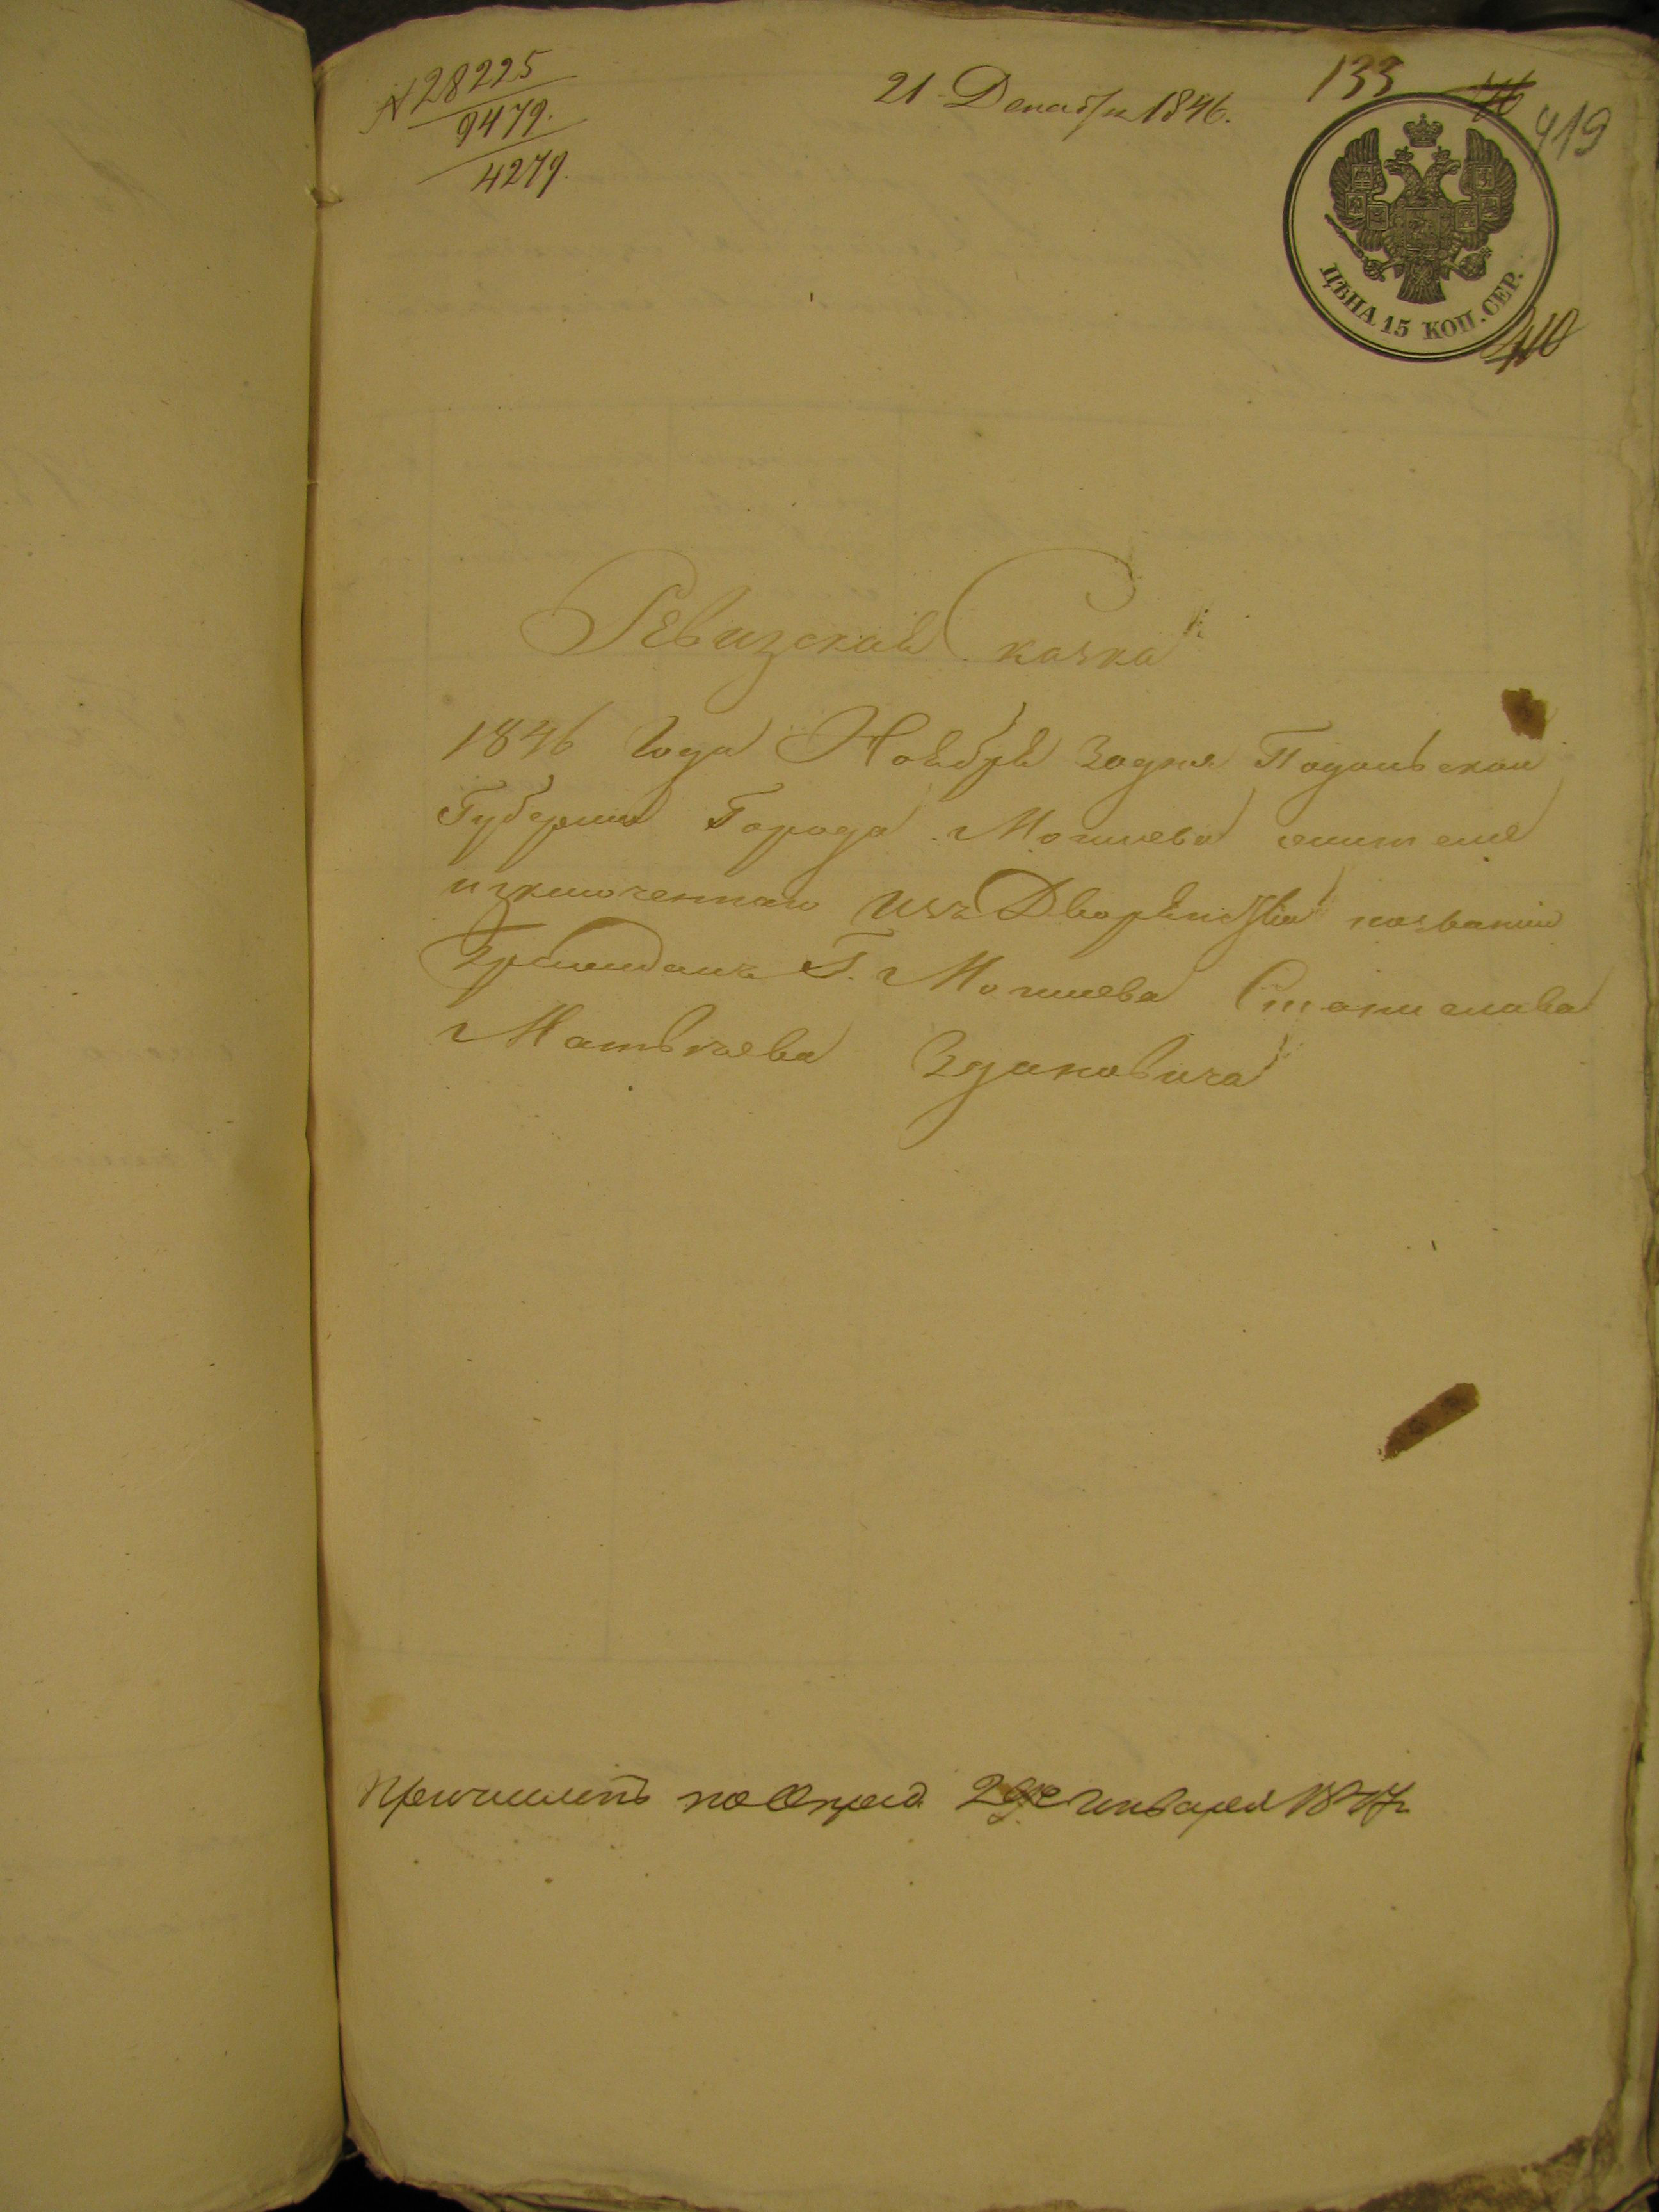 № 28225
9479.
4279.
21 Декабря 1846.
133
419
ЦѢНА 15 КОП. СЕР.
410
Ревизская Сказка
1846 года Ноября 30 дня Подольской
Губернии Города Могилева жителя
изключеннаго изъ Дворянства названии
Гражданъ Г. Могилева Станислава
Матвѣева Здановича
Причислить по Опред. Января 1847